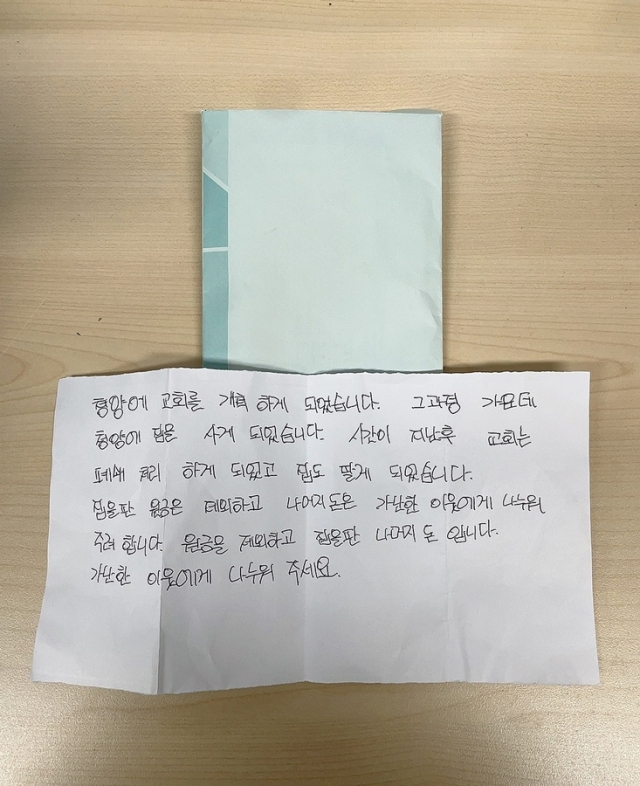 청양에 교회를 개척 하게 되었습니다. 그과정 가운데
청양에 집을 사게 되었습니다. 시간이 지난후 교회는
폐쇄 처리 하게 되었고 집도 팔게 되었습니다.
집을판 원금은 제외하고 나머지 돈은 가난한 이웃에게 나누워
주려 합니다. 원금을 제외하고 집을판 나머지 돈 입니다.
가난한 이웃에게 나누워 주세요.